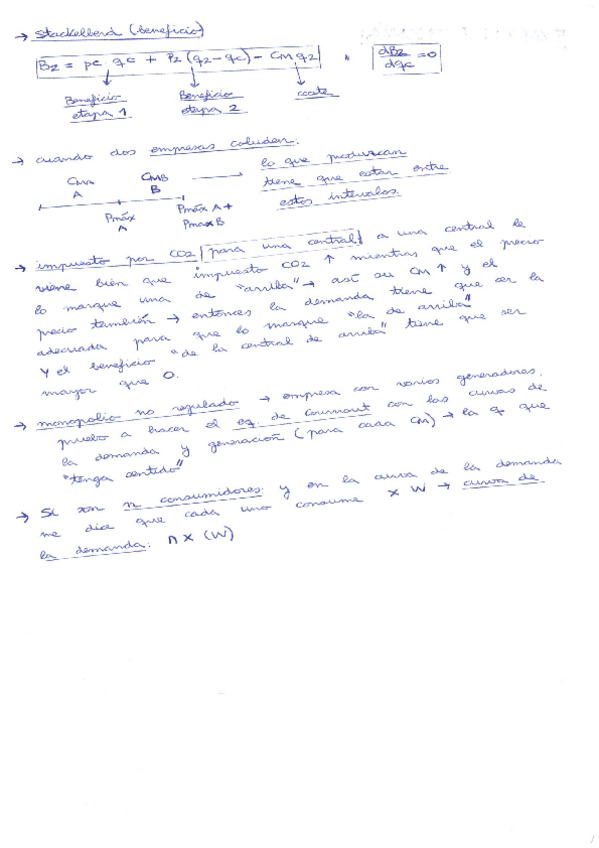 → Stackelberd (beneficio)
B2 = pc · qc + P2 (q2 - qc) - CM q2 , dB2/dqc = 0
Beneficio etapa 1 Beneficio etapa 2 coste
→ cuando dos empresas coluden:
CMA CMB → lo que produzcan
A B tiene que estar entre
Pmáx A Pmáx A + Pmax B estos intervalos
→ impuesto por CO2 para una central a una central le
viene bien que impuesto CO2 ↑ mientras que el precio
lo marque una de "arriba" → así su CM ↑ y el
precio también → entonces la demanda tiene que ser la
adecuada para que lo marque "la de arriba"
Y el beneficio "de la central de arriba" tiene que ser
mayor que 0.
→ monopolio no regulado → empresa con varios generadores.
pruebo a hacer el eq. de Cournout con las curvas de
la demanda y generación (para cada CM) → la q que
"tenga sentido"
→ Si son n consumidores: y en la curva de la demanda
me dice que cada uno consume x W → curva de
la demanda: n x (W)